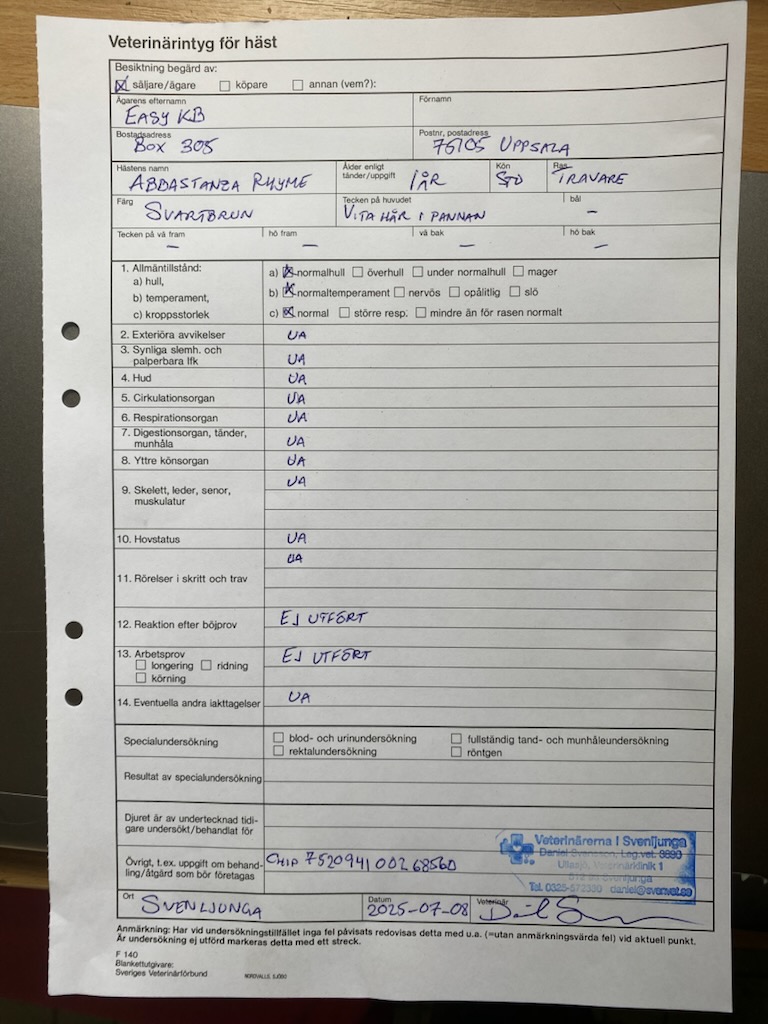 Veterinärintyg för häst
Besiktning begärd av:
säljare/ägare köpare annan (vem?):
Ägarens efternamn Förnamn
EASY KB
Bostadsadress Postnr, postadress
BOX 305 75105 UPPSALA
Hästens namn Ålder enligt tänder/uppgift Kön Ras
ABDASTANZA RHYME 1 ÅR STO TRAVARE
Färg Tecken på huvudet bål
SVARTBRUN VITA HÅR I PANNAN –
Tecken på vä fram hö fram vä bak hö bak
– – – –
1. Allmäntillstånd: a) normalhull överhull under normalhull mager
a) hull,
b) temperament, b) normaltemperament nervös opålitlig slö
c) kroppsstorlek c) normal större resp. mindre än för rasen normalt
2. Exteriöra avvikelser UA
3. Synliga slemh. och
palperbara lfk UA
4. Hud UA
5. Cirkulationsorgan UA
6. Respirationsorgan UA
7. Digestionsorgan, tänder,
munhåla UA
8. Yttre könsorgan UA
9. Skelett, leder, senor, UA
muskulatur
10. Hovstatus UA
11. Rörelser i skritt och trav UA
12. Reaktion efter böjprov EJ UTFÖRT
13. Arbetsprov EJ UTFÖRT
longering ridning
körning
14. Eventuella andra iakttagelser UA
Specialundersökning blod- och urinundersökning fullständig tand- och munhåleundersökning
rektalundersökning röntgen
Resultat av specialundersökning
Djuret är av undertecknad tidi-
gare undersökt/behandlat för
Övrigt, t.ex. uppgift om behand-
ling/åtgärd som bör företagas
CHIP 752094100268560
Veterinärerna I Svenljunga
Daniel Svensson, Leg.vet. 3890
Ullasjö, Veterinärklinik 1
Svenljunga
Tel. 0325-572380 daniel@svenvet.se
Ort Datum Veterinär
SVENLJUNGA 2025-07-08
Anmärkning: Har vid undersökningstillfället inga fel påvisats redovisas detta med u.a. (=utan anmärkningsvärda fel) vid aktuell punkt.
Är undersökning ej utförd markeras detta med ett streck.
F 140
Blankettutgivare:
Sveriges Veterinärförbund NORDVALLS, SJÖBO